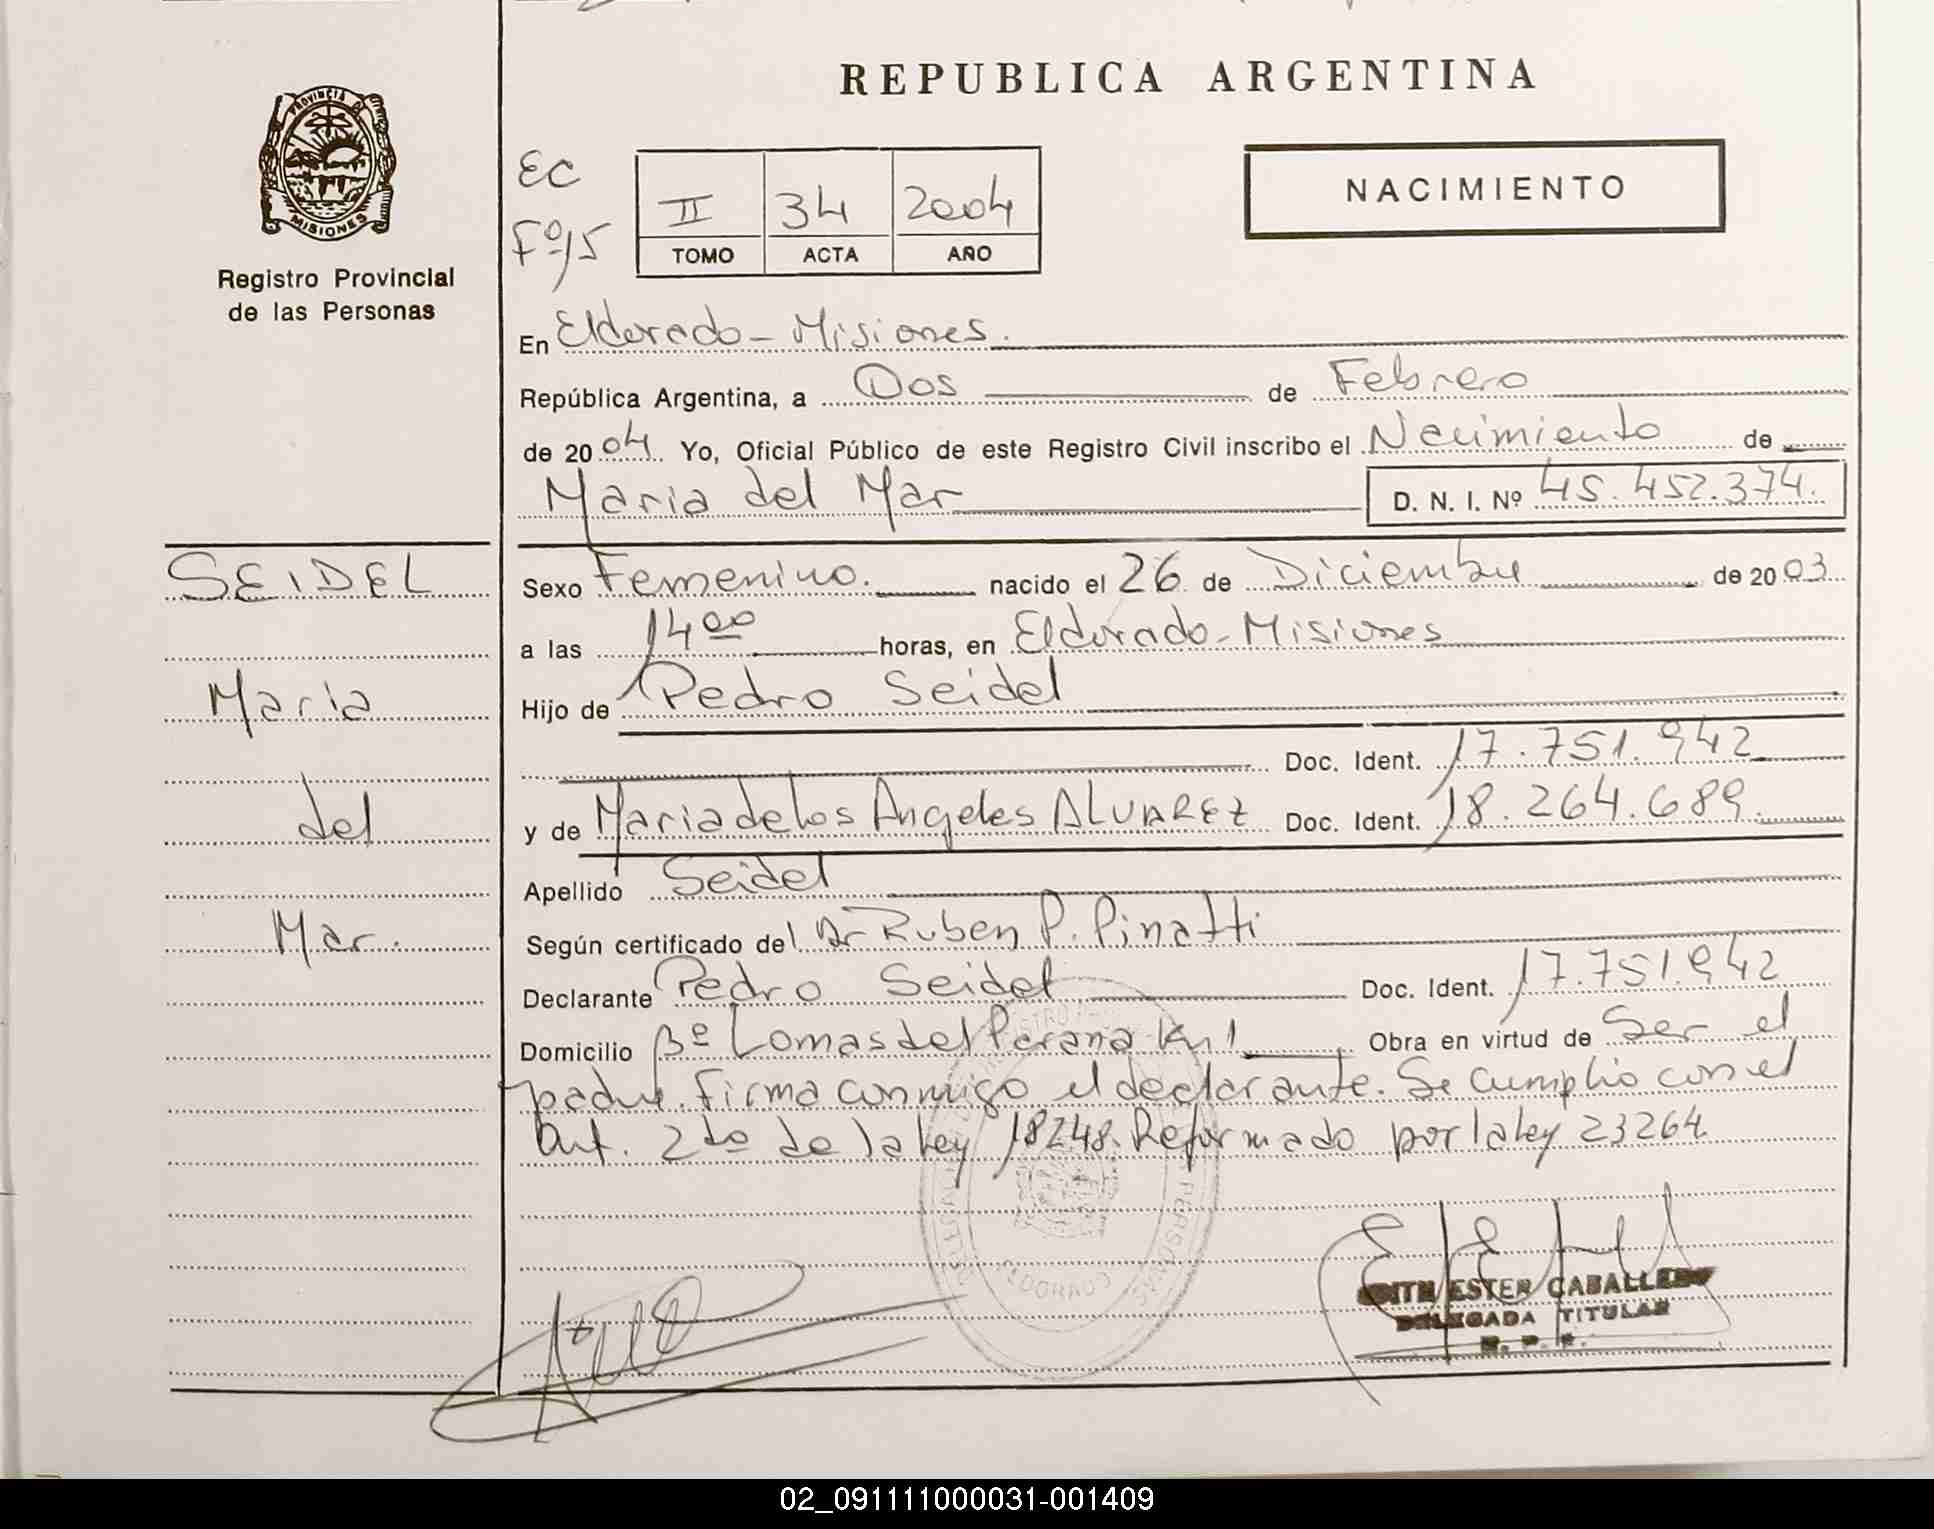 REPUBLICA ARGENTINA
PROVINCIA DE
MISIONES
Registro Provincial
de las Personas
EC
Fº 15
II 34 2004
TOMO ACTA AÑO
NACIMIENTO
En Eldorado - Misiones.
República Argentina, a Dos de Febrero
de 2004 Yo, Oficial Público de este Registro Civil inscribo el Nacimiento de
Maria del Mar D. N. I. Nº 45.452.374.
SEIDEL
Maria
del
Mar.
Sexo Femenino. nacido el 26 de Diciembre de 2003
a las 14 00 horas, en Eldorado - Misiones
Hijo de Pedro Seidel
Doc. Ident. 17.751.942
y de Maria de los Angeles ALVAREZ Doc. Ident. 18.264.689
Apellido Seidel
Según certificado del Dr Ruben P. Pinatti
Declarante Pedro Seidel Doc. Ident. 17.751.942
Domicilio Bº Lomas del Parana Km 1 Obra en virtud de Ser el
padre. Firma conmigo el declarante. Se cumplio con el
Art. 2do de la Ley 18248. Reformado por la ley 23264.
ELDORADO
EDITH ESTER CABALLERO
DELEGADA TITULAR
R. P. P.
02_091111000031-001409